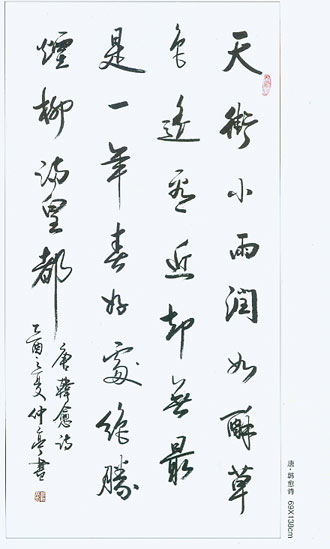 天街小雨潤如酥草
色遥看近却無最
是一年春好處絶勝
煙柳满皇都
唐韓愈诗
乙酉之夏仲亭書
唐·韩愈诗 69X138cm